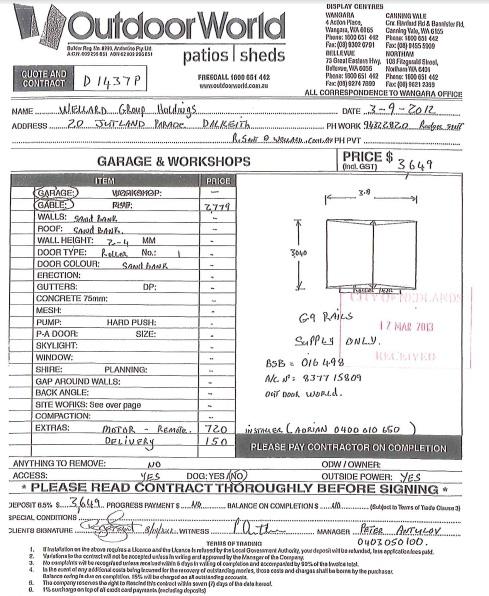 OutdoorWorld
patios | sheds
FREECALL 1800 651 442
www.outdoorworld.com.au
DISPLAY CENTRES
WANGARA
4 Achton Place,
Wangara, WA 6065
Phone: 1800 651 442
Fax: (08) 9302 6791
CANNING VALE
Canning Vale, WA 6155
Phone: 1800 651 442
Fax: (08) 9455 5909
BELLEVUE
73 Great Eastern Hwy.
Bellevue, WA 6056
Phone: 1800 651 442
Fax: (08) 9274 7699
NORTHAM
108 Fitzgerald Street,
Northam WA 6401
Phone: 1800 651 442
Fax: (08) 9621 2369
ALL CORRESPONDENCE TO WANGARA OFFICE
QUOTE AND CONTRACT D1437P
NAME WELLARD GROUP HOLDINGS DATE 3-9-2012
ADDRESS 20 JUTLAND PARADE DALKEITH PH WORK
PH PVT
GARAGE & WORKSHOPS
PRICE $ (Incl. GST) 3649
ITEM PRICE
GARAGE: WORKSHOP: -
GABLE: 2,779
WALLS: SAND BANK -
ROOF: SAND BANK. -
WALL HEIGHT: 2-4 MM -
DOOR TYPE: Roller No.: 1 -
DOOR COLOUR: SAND BANK -
ERECTION: -
GUTTERS: DP: -
CONCRETE 75mm: -
MESH: -
PUMP: HARD PUSH: -
P-A DOOR: SIZE: -
SKYLIGHT: -
WINDOW: -
SHIRE: PLANNING: -
GAP AROUND WALLS: -
BACK ANGLE: -
SITE WORKS: See over page -
COMPACTION: -
EXTRAS: MOTOR - REMOTE. 720
DELIVERY 150
3.8
3040
ROLLER DOOR
CITY OF NEDLANDS
17 MAR 2013
RECEIVED
G9 RAILS
SUPPLY ONLY.
BSB = 016498
A/C Nº: 837715809
OUT DOOR WORLD.
INSTALLER (ADRIAN 0400 010 650)
PLEASE PAY CONTRACTOR ON COMPLETION
ANYTHING TO REMOVE: NO ODW / OWNER:
ACCESS: YES DOG: YES / NO OUTSIDE POWER: YES
* PLEASE READ CONTRACT THOROUGHLY BEFORE SIGNING *
DEPOSIT 6.5% $ 3,649. PROGRESS PAYMENT $ NO BALANCE ON COMPLETION $ NO (Subject to Terms of Trade Clause 3)
SPECIAL CONDITIONS
CLIENTS SIGNATURE WITNESS MANAGER PETER ANTULOV
0403050100.
TERMS OF TRADING
1. If installation on the above requires a Licence and the Licence is refused by the Local Government Authority, your deposit will be refunded, less application fees paid.
2. Variations to the contract will not be accepted unless in writing and approved by the Manager of the Company.
3. No complaints will be recognised unless received within 5 days in writing of completion and accompanied by 90% of the invoice total.
4. In the event of any additional costs being incurred for the recovery of outstanding monies, those costs and charges shall be borne by the purchaser.
5. The company reserves the right to Rescind this contract within seven (7) days of the date hereof.
6. 1% surcharge on top of all credit card payments (excluding deposits)